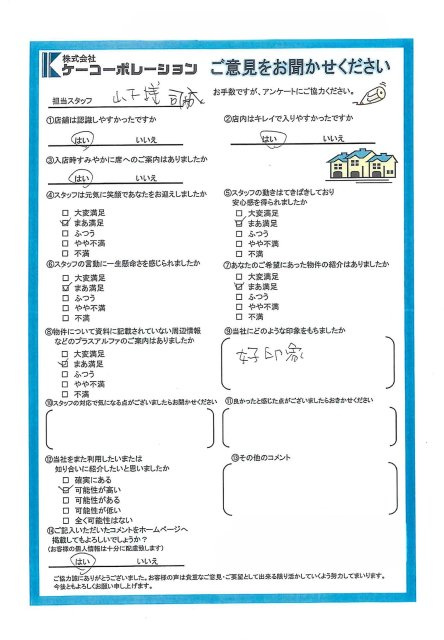 株式会社
ケーコーポレーション ご意見をお聞かせください
担当スタッフ 山下様
お手数ですが、アンケートにご協力ください。
①店舗は認識しやすかったですか
はい いいえ
②店内はキレイで入りやすかったですか
はい いいえ
③入店時すみやかに席へのご案内はありましたか
はい いいえ
④スタッフは元気に笑顔であなたをお迎えしましたか
□ 大変満足
☑ まあ満足
□ ふつう
□ やや不満
□ 不満
⑤スタッフの動きはてきぱきしており
安心感を得られましたか
□ 大変満足
☑ まあ満足
□ ふつう
□ やや不満
□ 不満
⑥スタッフの言動に一生懸命さを感じられましたか
□ 大変満足
☑ まあ満足
□ ふつう
□ やや不満
□ 不満
⑦あなたのご希望にあった物件の紹介はありましたか
□ 大変満足
☑ まあ満足
□ ふつう
□ やや不満
□ 不満
⑧物件について資料に記載されていない周辺情報
などのプラスアルファのご案内はありましたか
□ 大変満足
☑ まあ満足
□ ふつう
□ やや不満
□ 不満
⑨当社にどのような印象をもちましたか
好印象
⑩スタッフの対応で気になる点がございましたらお聞かせください
⑪良かったと感じた点がございましたらおきかせください
⑫当社をまた利用したいまたは
知り合いに紹介したいと思いましたか
□ 確実にある
☑ 可能性が高い
□ 可能性がある
□ 可能性が低い
□ 全く可能性はない
⑬その他のコメント
⑭ご記入いただいたコメントをホームページへ
掲載してもよろしいでしょうか？
(お客様の個人情報は十分に配慮致します)
はい いいえ
ご協力誠にありがとうございました。お客様の声は貴重なご意見・ご要望として出来る限り活かしていくよう努力してまいります。
今後ともよろしくお願い申し上げます。